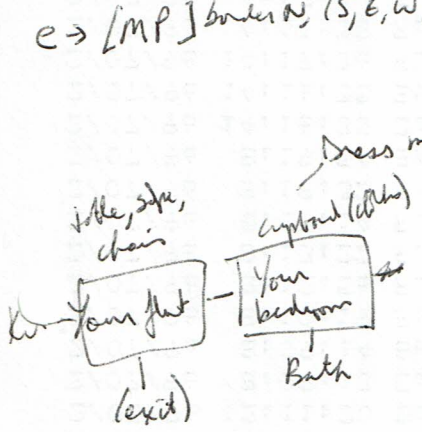 e → [MP] border N, (S, E, W
Dress
table, sofa,
chairs
cupboard (clothes)
Your flat
Your
bedroom
(exit)
Bath